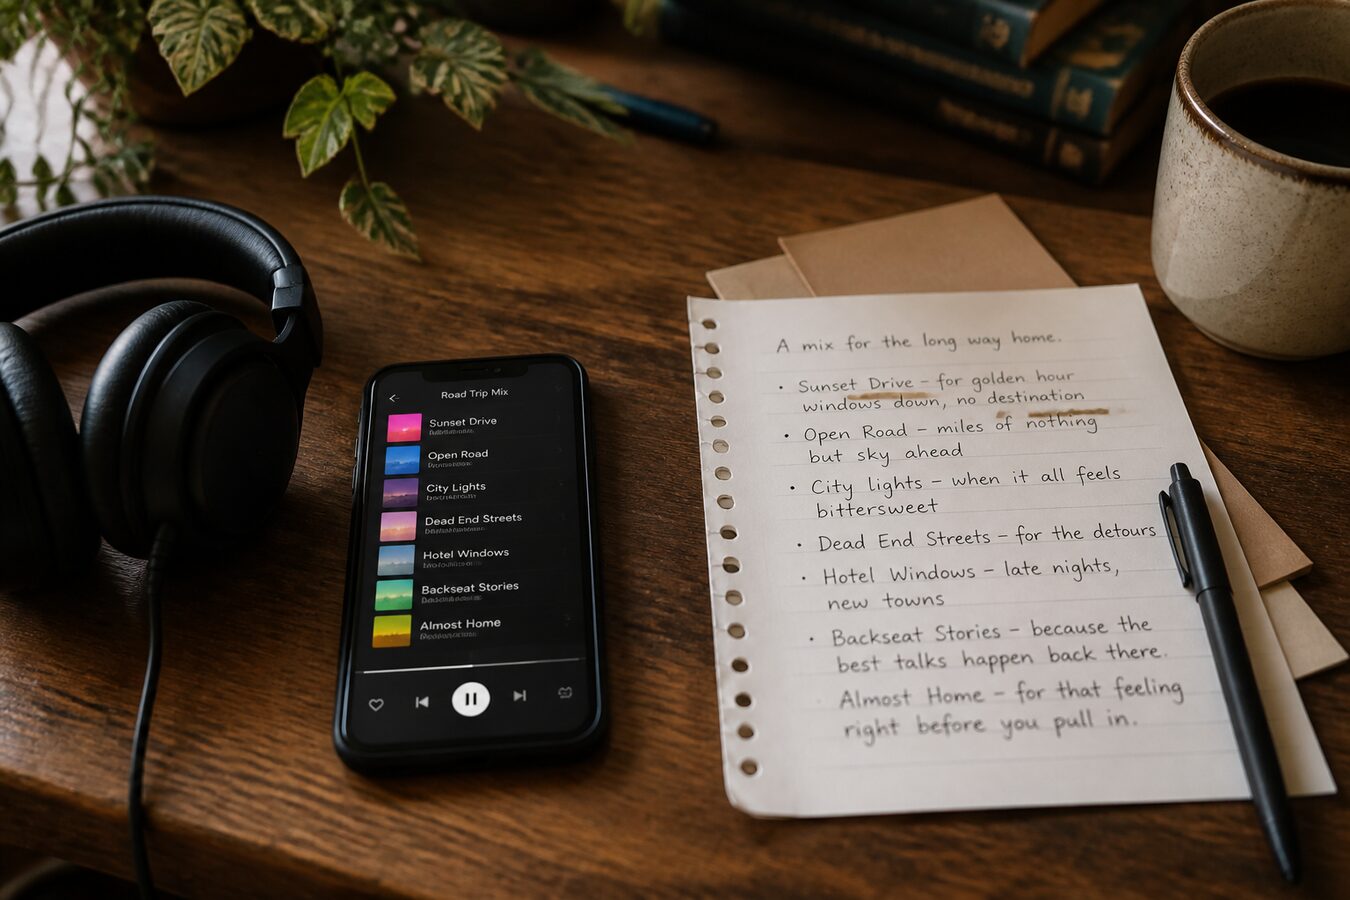 Road Trip Mix
Sunset Drive
Open Road
City Lights
Dead End Streets
Hotel Windows
Backseat Stories
Almost Home
A mix for the long way home.
• Sunset Drive – for golden hour
windows down, no destination
• Open Road – miles of nothing
but sky ahead
• City lights – when it all feels
bittersweet
• Dead End Streets – for the detours
• Hotel Windows – late nights,
new towns
• Backseat Stories – because the
best talks happen back there.
Almost Home – for that feeling
right before you pull in.